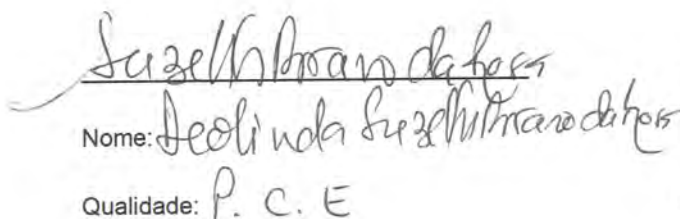 Suzeth Bravo da Rosa
Nome: Deolinda Suzeth Bravo da Rosa
Qualidade: P. C. E